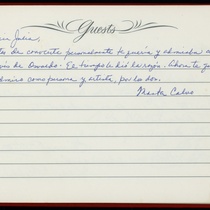 Guests
Julia,
de conocerte personalmente te quería y admiraba a
de Oswaldo. El tiempo le dió la razón. Ahora te
como persona y artista, por los dos.
Martha Calvo